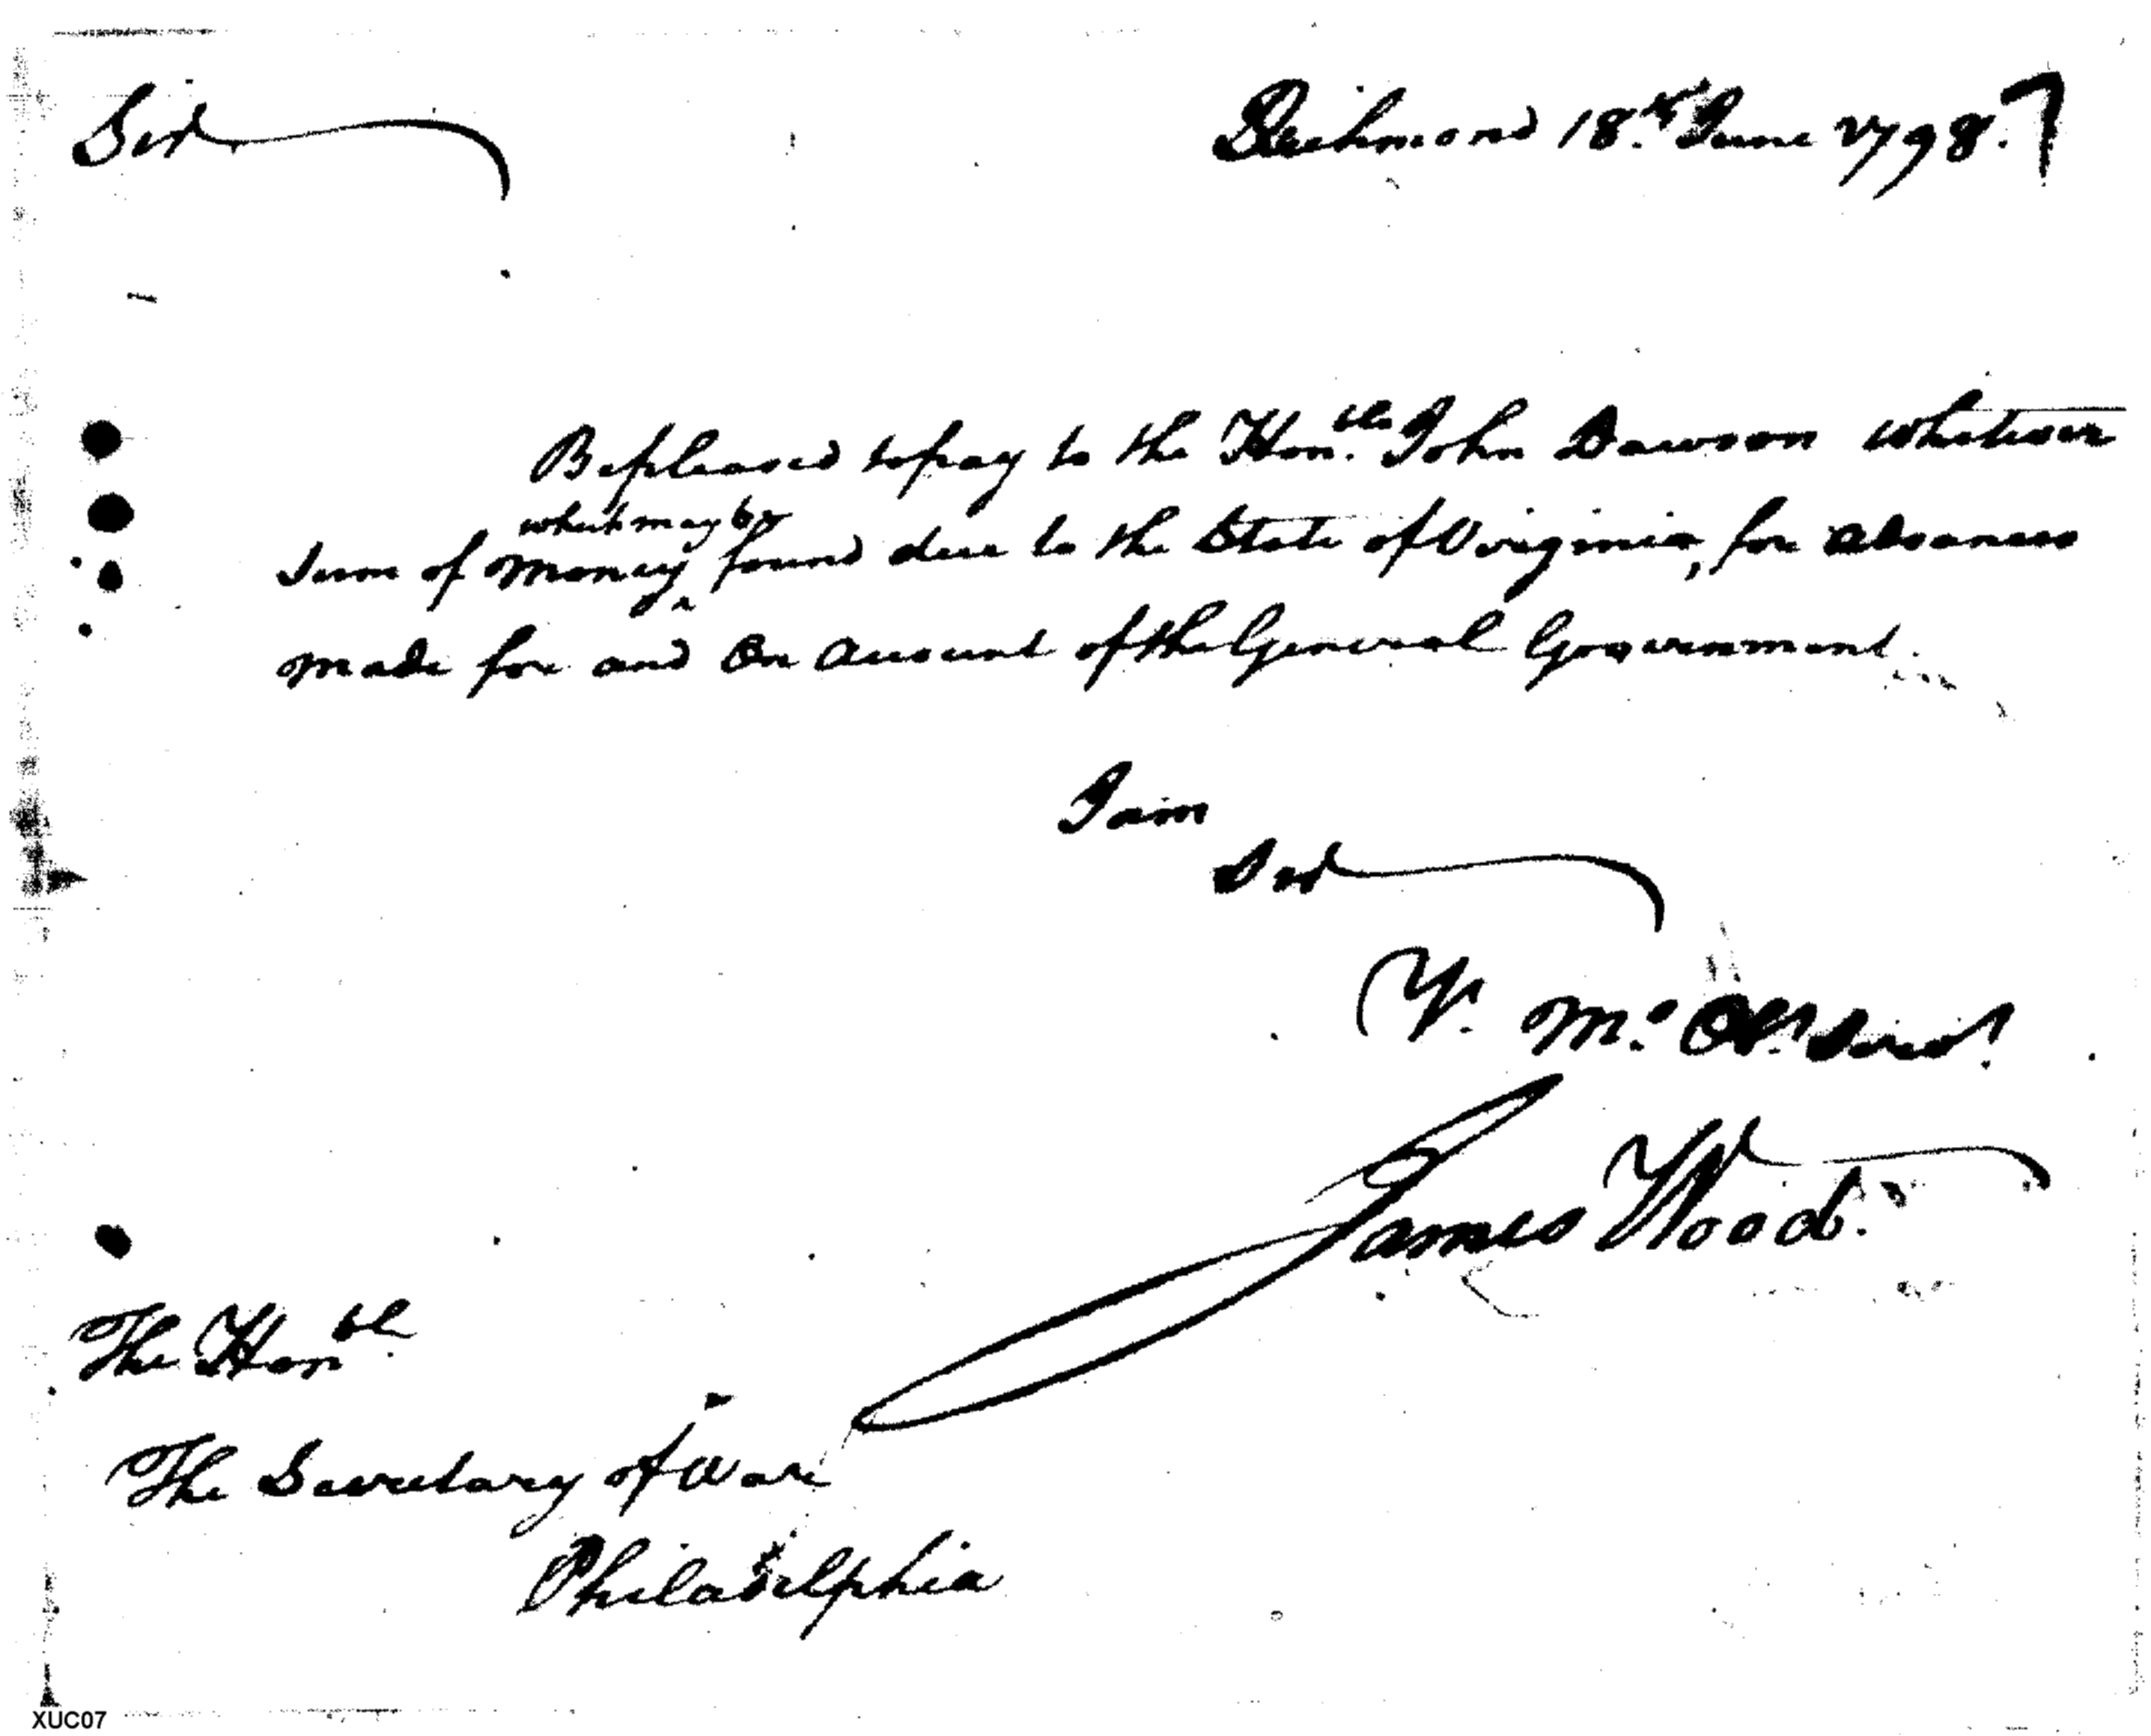 Sir
Richmond 18.th June 1798.
Be pleased to pay to the Hon.ble John Dawson whatever
what may be
Sum of Money ^ found due to the State of Virginia, for advances
made for and On Account of the General Government.
I am
Sir
Yr. Mo. Ob. Servt.
James Wood.
The Honble.
The Secretary of War
Philadelphia
XUC07